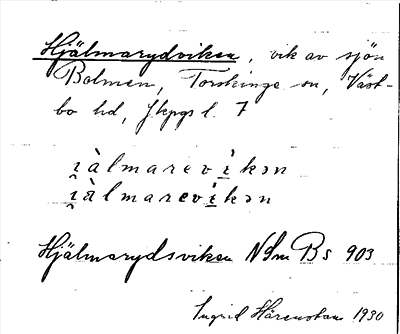 Hjälmarydviken, vik av sjön
Bolmen, Torskinge sn, Väst-
bo hd, Jkpgs l. 7
ı̯àlmarevi̇̀kən
ı̯àlmarevi̇̀kən
Hjälmarydsviken NSm Bs 903
Ingrid 1930